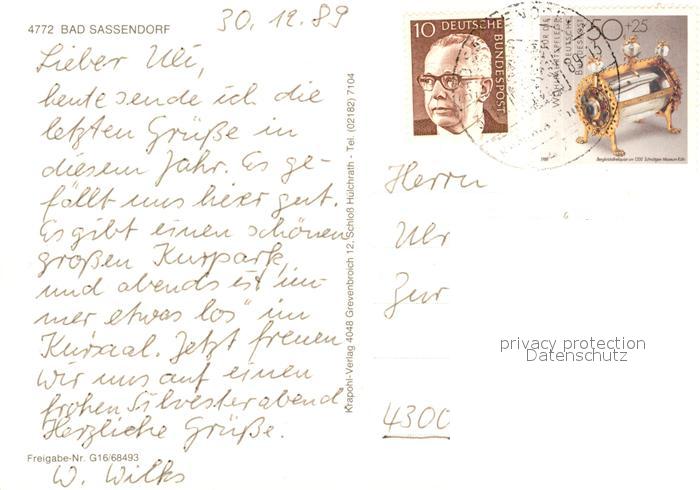 30.12.89
4772 BAD SASSENDORF
Lieber Uli,
heute sende ich die
letzten Grüße in
diesem Jahr. Es ge-
fällt uns hier gut.
Es gibt einen schönen,
großen Kurpark,
und abends ist „im-
mer etwas los" im
Kursaal. Jetzt freuen
wir uns auf einen
frohen Silvesterabend
Herzliche Grüße.
Freigabe-Nr. G16/68493
W. Wilks
Krapohl-Verlag 4048 Grevenbroich 12, Schloß Hülchrath - Tel. (02182) 7104
10 DEUTSCHE
BUNDESPOST
50+25
FÜR DIE
WOHLFAHRTSPFLEGE
DEUTSCHE
BUNDESPOST
Bergkristallreliquiar um 1200 Schnütgen-Museum Köln
Herrn
Ulr
Zur
4300
privacy protection
Datenschutz